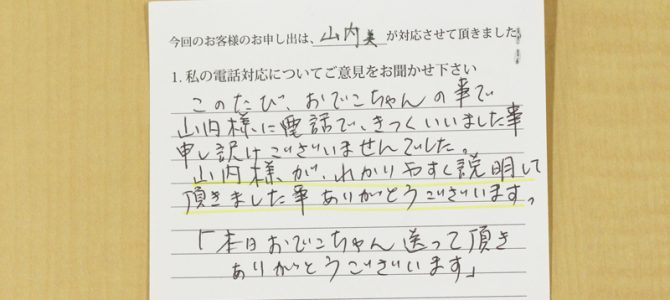 今回のお客様のお申し出は、山内美が対応させて頂きました。
1. 私の電話対応についてご意見をお聞かせ下さい
このたび、おでこちゃんの事で
山内様に電話で、きつくいいました事
申し訳けございませんでした。
山内様が、わかりやすく説明して
頂きました事ありがとうございます。
「本日おでこちゃん送って頂き
ありがとうございます」